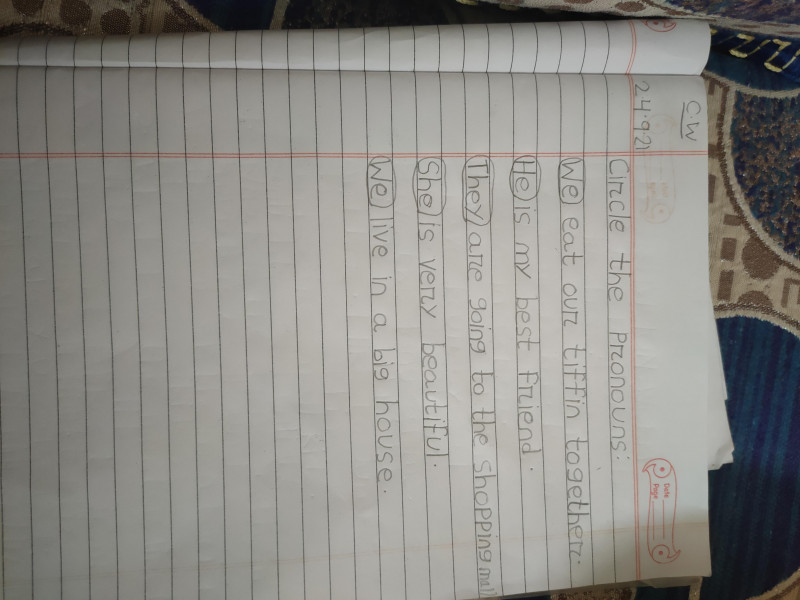 C.W
24.9.21
Circle the pronouns:
We eat our tiffin together.
He is my best friend.
They are going to the shopping mall
She is very beautiful.
We live in a big house.
Date
Page